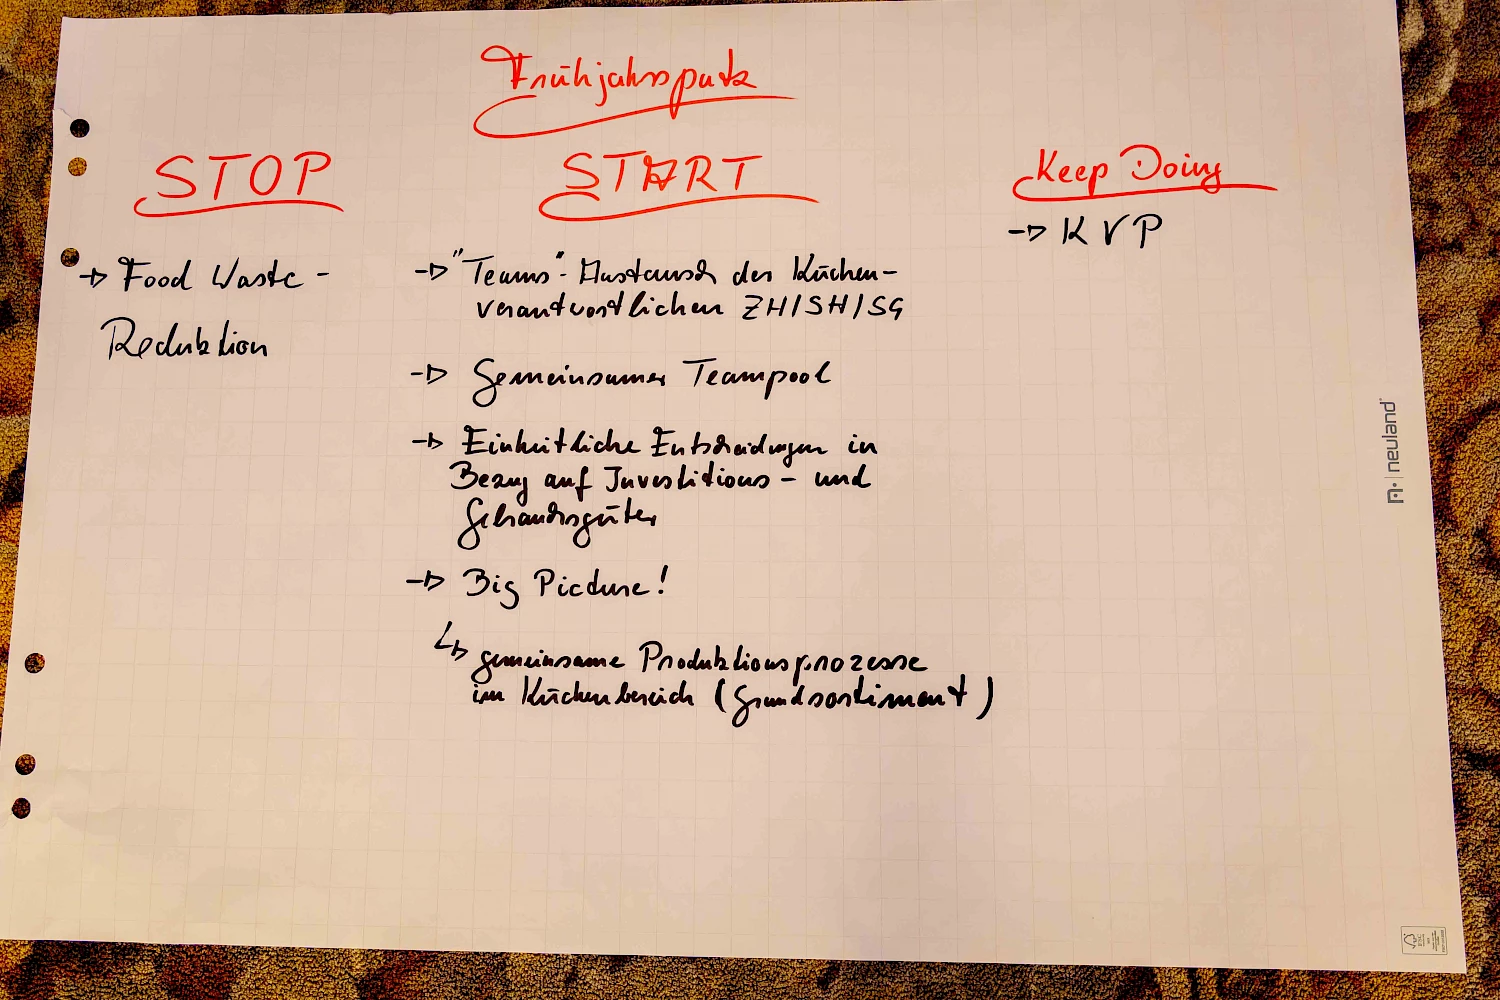 Frühjahrsputz
STOP
-> Food Waste -
Reduktion
START
-> "Teams"- Austausch der Küchen-
verantwortlichen ZH/SH/SG
-> Gemeinsamer Teampool
-> Einheitliche Entscheidungen in
Bezug auf Investitions- und
Gebrauchsgüter
-> Big Picture!
↳ gemeinsame Produktionsprozesse
im Küchenbereich (Grundsortiment)
Keep Doing
-> KVP
neuland